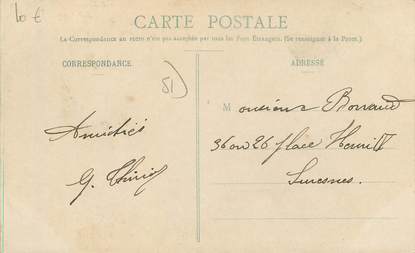 10 €
CARTE POSTALE
La Correspondance au recto n'est pas acceptée par tous les Pays Étrangers. (Se renseigner à la Poste.)
CORRESPONDANCE
ADRESSE
51
Amitiés
G.
Monsieur
36 ou 26 place Henri IV
Suresnes.